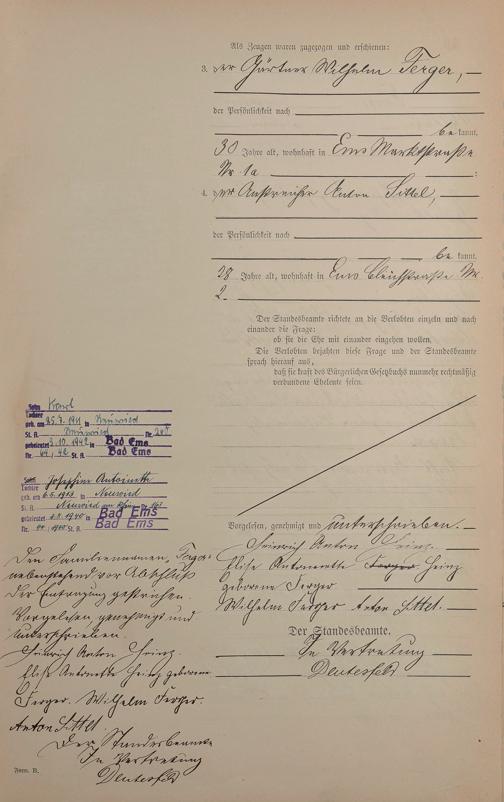 Als Zeugen waren zugezogen und erschienen:
3. der Gärtner Wilhelm Ferger,
der Persönlichkeit nach
be kannt,
30 Jahre alt, wohnhaft in Ems Marktstraße
Nr. 1a ;
4. der Anstreicher Anton Sittel,
der Persönlichkeit nach
be kannt,
28 Jahre alt, wohnhaft in Ems Bleichstraße Nr.
2.
Der Standesbeamte richtete an die Verlobten einzeln und nach
einander die Frage:
ob sie die Ehe mit einander eingehen wollen.
Die Verlobten bejahten diese Frage und der Standesbeamte
sprach hierauf aus,
daß sie kraft des Bürgerlichen Gesetzbuchs nunmehr rechtmäßig
verbundene Eheleute seien.
Vorgelesen, genehmigt und unterschrieben.
Heinrich Anton Heinz.
Elise Antonette Ferger Heinz
geborene Ferger
Wilhelm Ferger Anton Sittel.
Der Standesbeamte.
In Vertretung
Deutesfeld
Sohn Karl
Tochter
geb. am 25.7. 1911 in Neuwied
St. A. Neuwied Nr.
geheiratet 3.10. 1942 in Bad Ems
Nr. 64/42 St. A. Bad Ems
Sohn Josephine Antoinette
Tochter
geb. am 6.5. 1913 in Neuwied
St. A. Neuwied am Rhein Nr.
geheiratet 1940 in Bad Ems
Nr. 1940 St. A. Bad Ems
Den Familiennamen, Ferger
nebenstehend vor Abschluß
der Eintragung gestrichen.
Vorgelesen, genehmigt und
unterschrieben.
Heinrich Anton Heinz.
Elise Antonette Heinz geborene
Ferger. Wilhelm Ferger.
Anton Sittel.
Der Standesbeamte
In Vertretung
Deutesfeld
Form. B.